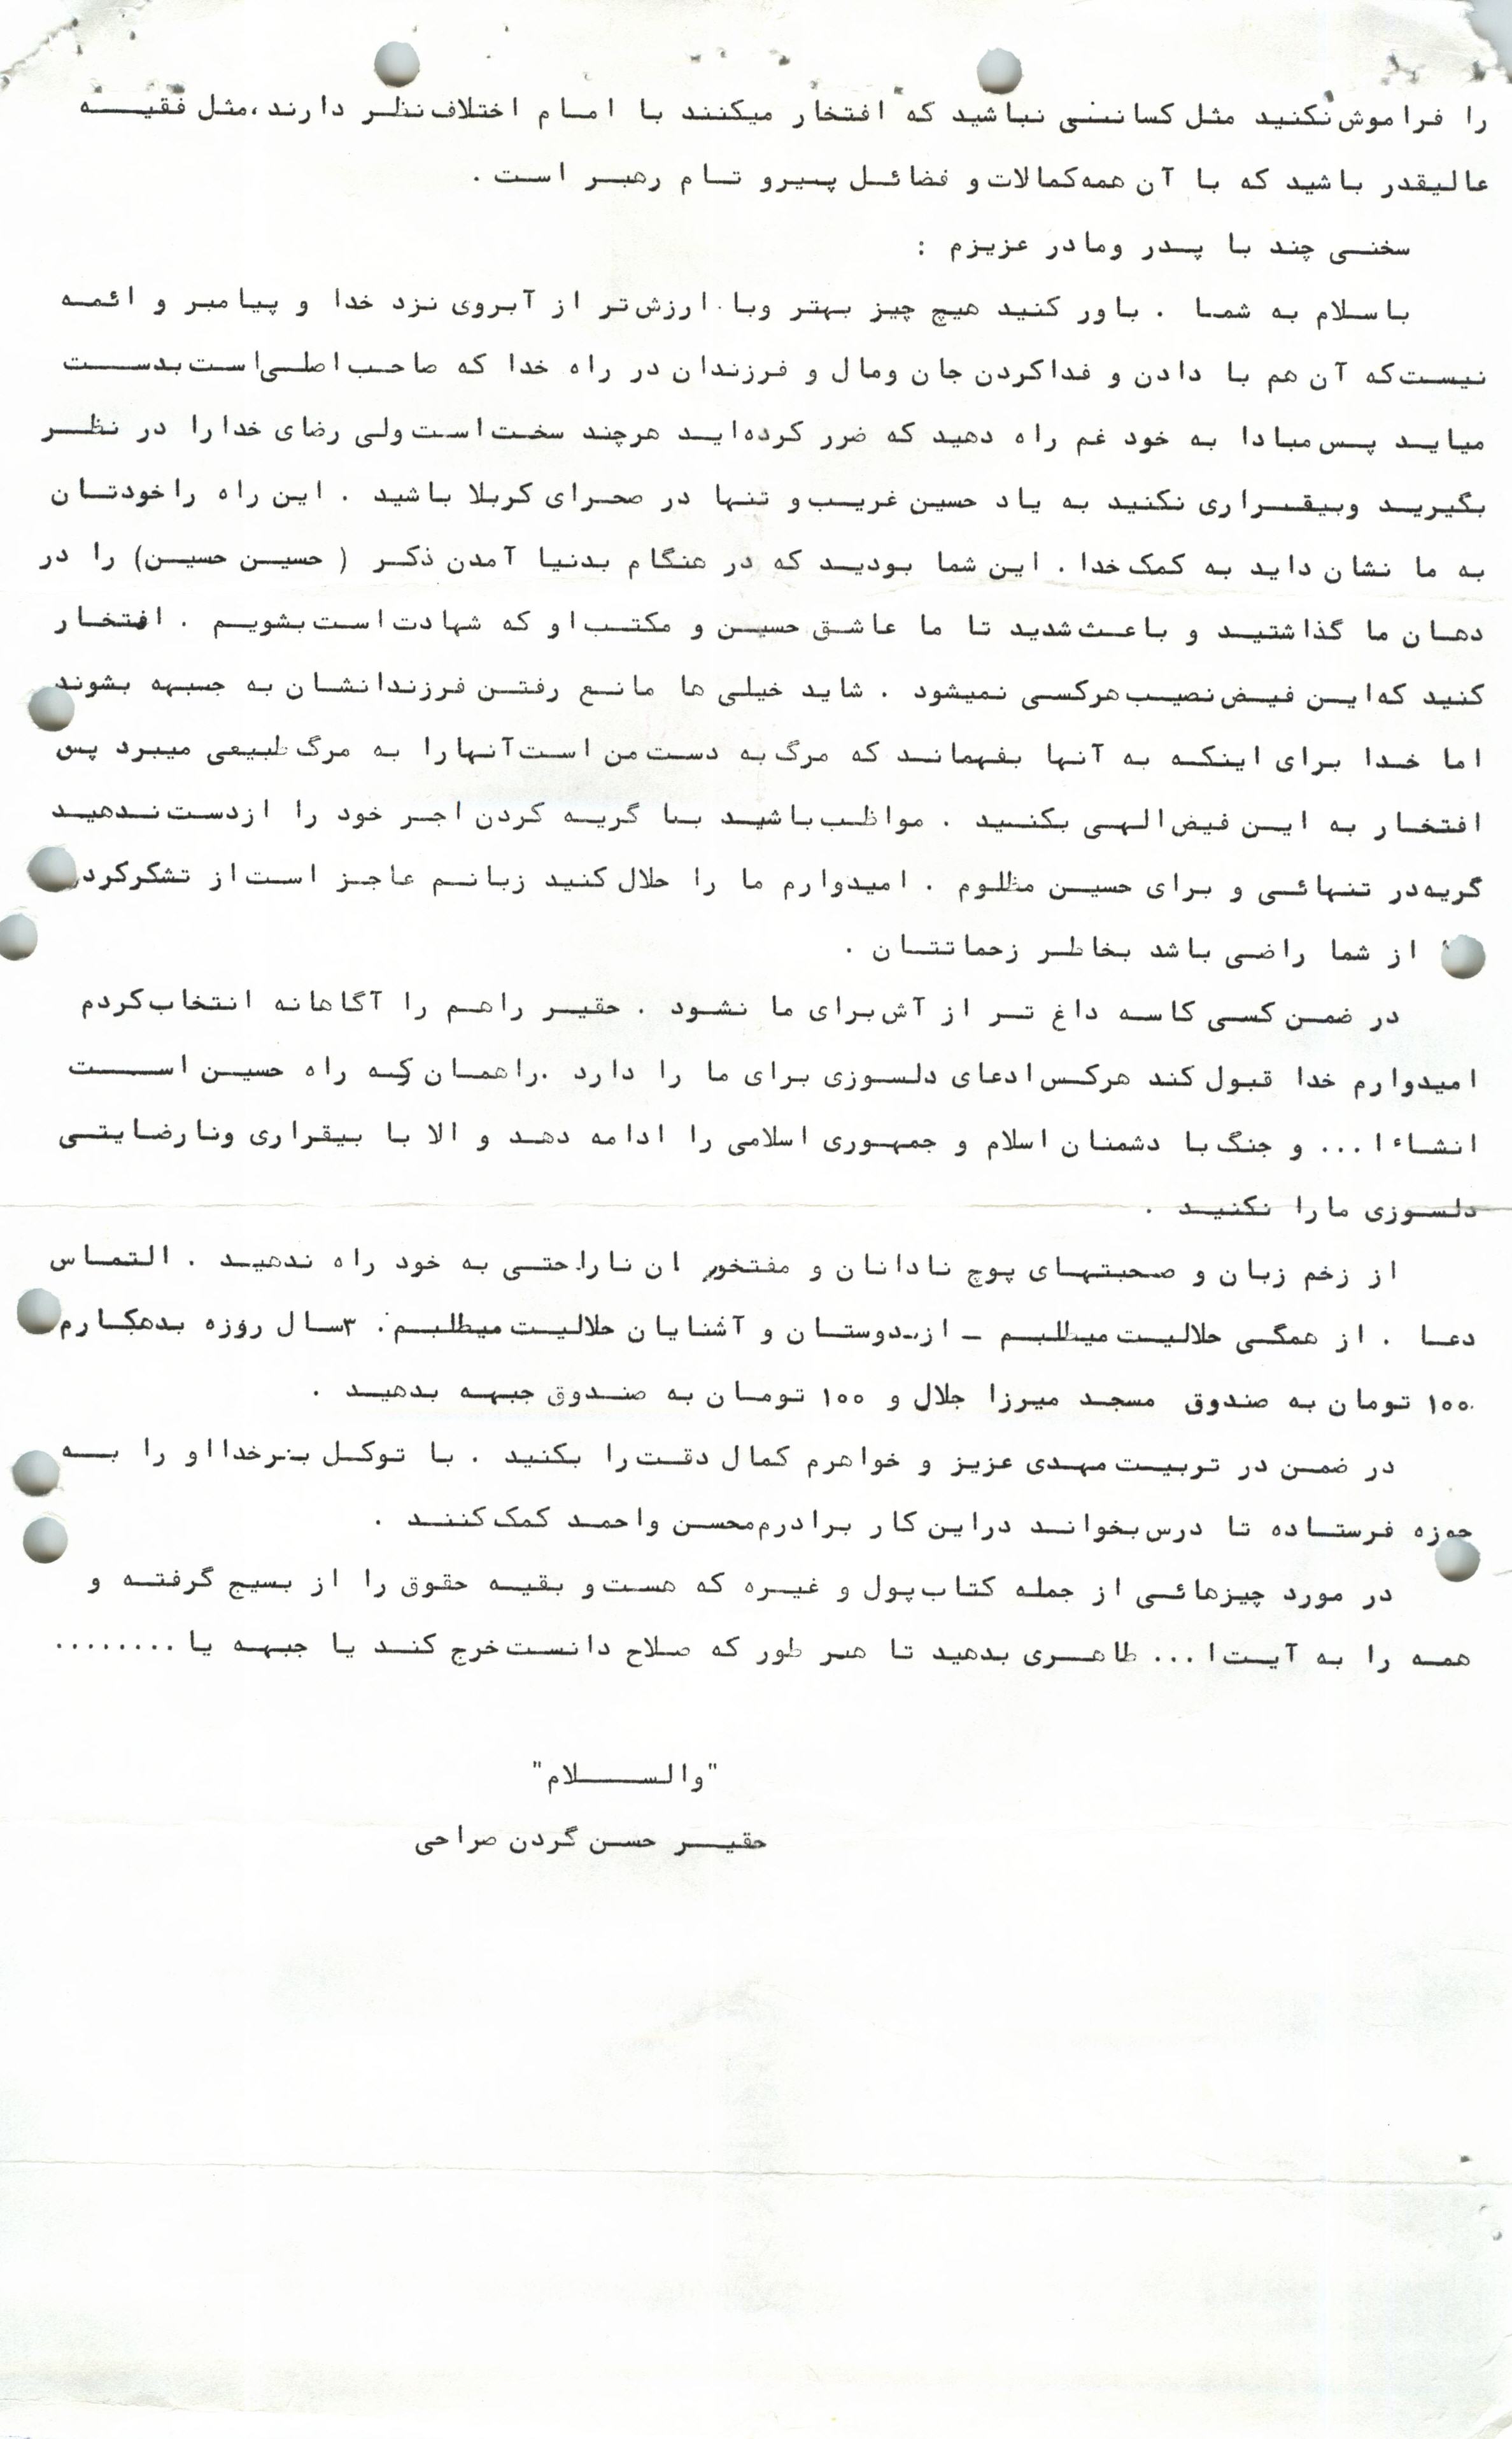 را فراموش نکنید مثل کسانی نباشید که افتخار میکنند با امام اختلاف نظر دارند، مثل فقیه
عالیقدر باشید که با آن همه کمالات و فضائل پیرو تام رهبر است .
سخنی چند با پدر ومادر عزیزم :
باسلام به شما . باور کنید هیچ چیز بهتر وبا ارزش تر از آبروی نزد خدا و پیامبر و ائمه
نیست که آن هم با دادن و فدا کردن جان ومال و فرزندان در راه خدا که صاحب اصلی است بدست
میاید پس مبادا به خود غم راه دهید که ضرر کرده اید هرچند سخت است ولی رضای خدا را در نظر
بگیرید وبیقراری نکنید به یاد حسین غریب و تنها در صحرای کربلا باشید . این راه را خودتان
به ما نشان داید به کمک خدا . این شما بودید که در هنگام بدنیا آمدن ذکر ( حسین حسین) را در
دهان ما گذاشتید و باعث شدید تا ما عاشق حسین و مکتب او که شهادت است بشویم . افتخار
کنید که این فیض نصیب هرکسی نمیشود . شاید خیلی ها مانع رفتن فرزندانشان به جبهه بشوند
اما خدا برای اینکه به آنها بفهماند که مرگ به دست من است آنها را به مرگ طبیعی میبرد پس
افتخار به این فیض الهی بکنید . مواظب باشید با گریه کردن اجر خود را از دست ندهید
گریه در تنهائی و برای حسین مظلوم . امیدوارم ما را حلال کنید زبانم عاجز است از تشکر کرد
از شما راضی باشد بخاطر زحماتتان .
در ضمن کسی کاسه داغ تر از آش برای ما نشود . حقیر راهم را آگاهانه انتخاب کردم
امیدوارم خدا قبول کند هرکس ادعای دلسوزی برای ما را دارد .راهمان که راه حسین است
انشاء ا... و جنگ با دشمنان اسلام و جمهوری اسلامی را ادامه دهد و الا با بیقراری ونارضایتی
دلسوزی ما را نکنید .
از زخم زبان و صحبتهای پوچ نادانان و مفتخور ان ناراحتی به خود راه ندهید . التماس
دعا . از همگی حلالیت میطلبم - از دوستان و آشنایان حلالیت میطلبم . ۳سال روزه بدهکارم
۱۰۰ تومان به صندوق مسجد میرزا جلال و ۱۰۰ تومان به صندوق جبهه بدهید .
در ضمن در تربیت مهدی عزیز و خواهرم کمال دقت را بکنید . با توکل بر خدا او را به
حوزه فرستاده تا درس بخواند دراین کار برادرم محسن واحمد کمک کنند .
در مورد چیزهائی از جمله کتاب پول و غیره که هست و بقیه حقوق را از بسیج گرفته و
همه را به آیت ا... طاهری بدهید تا هر طور که صلاح دانست خرج کند یا جبهه یا ........
"والسلام"
حقیر حسن گردن صراحی